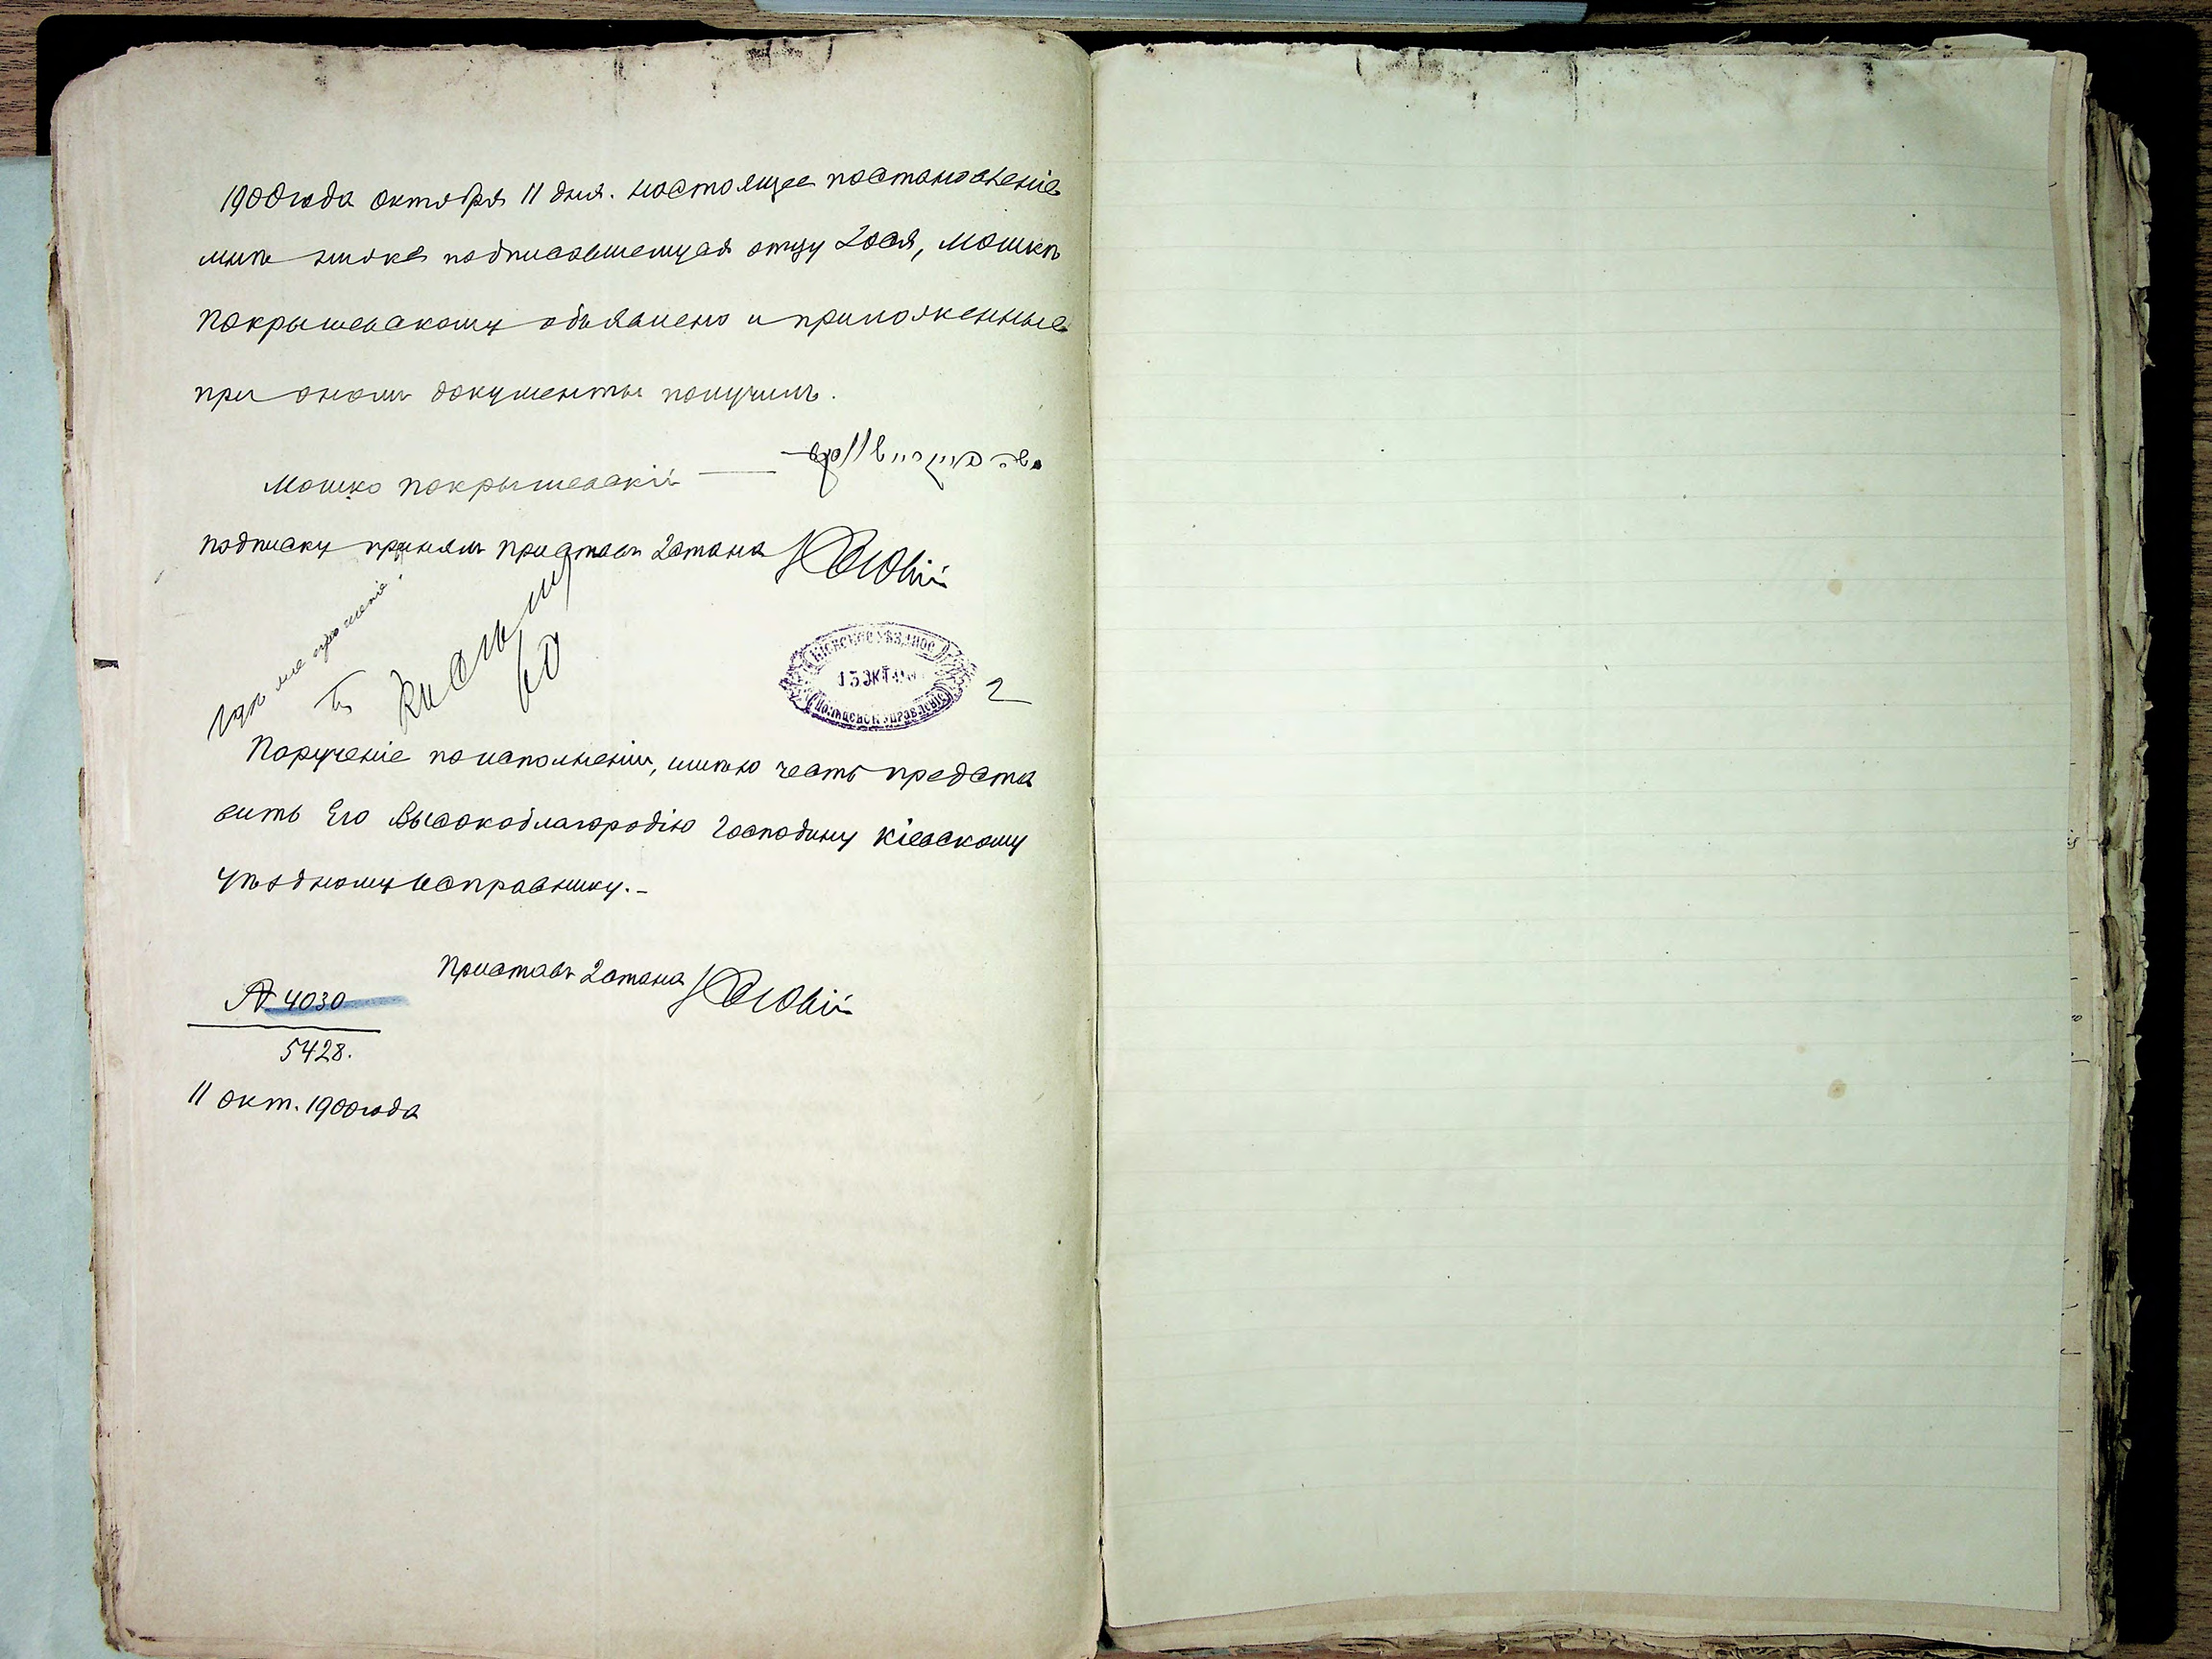 1900 года октября 11 дня. настоящее постановленіе
мнѣ ниже подписавшемуся отцу Хася, Мошкѣ
Покрышевскому объявлено и приложенные
при ономъ документы получилъ.
Мошко Покрышевскій
подписку принялъ Приставъ 2 стана
гдѣ же прошеніе?
КІЕВСКОЕ УѢЗДНОЕ
15 ОКТ
ПОЛИЦЕЙСК УПРАВЛЕНІЕ
2
Порученіе по исполненіи, имѣю честь предста
вить Его Высокоблагородію Господину Кіевскому
Уѣздному Исправнику.-
Приставъ 2 стана
№ 4030
5428.
11 окт. 1900 года